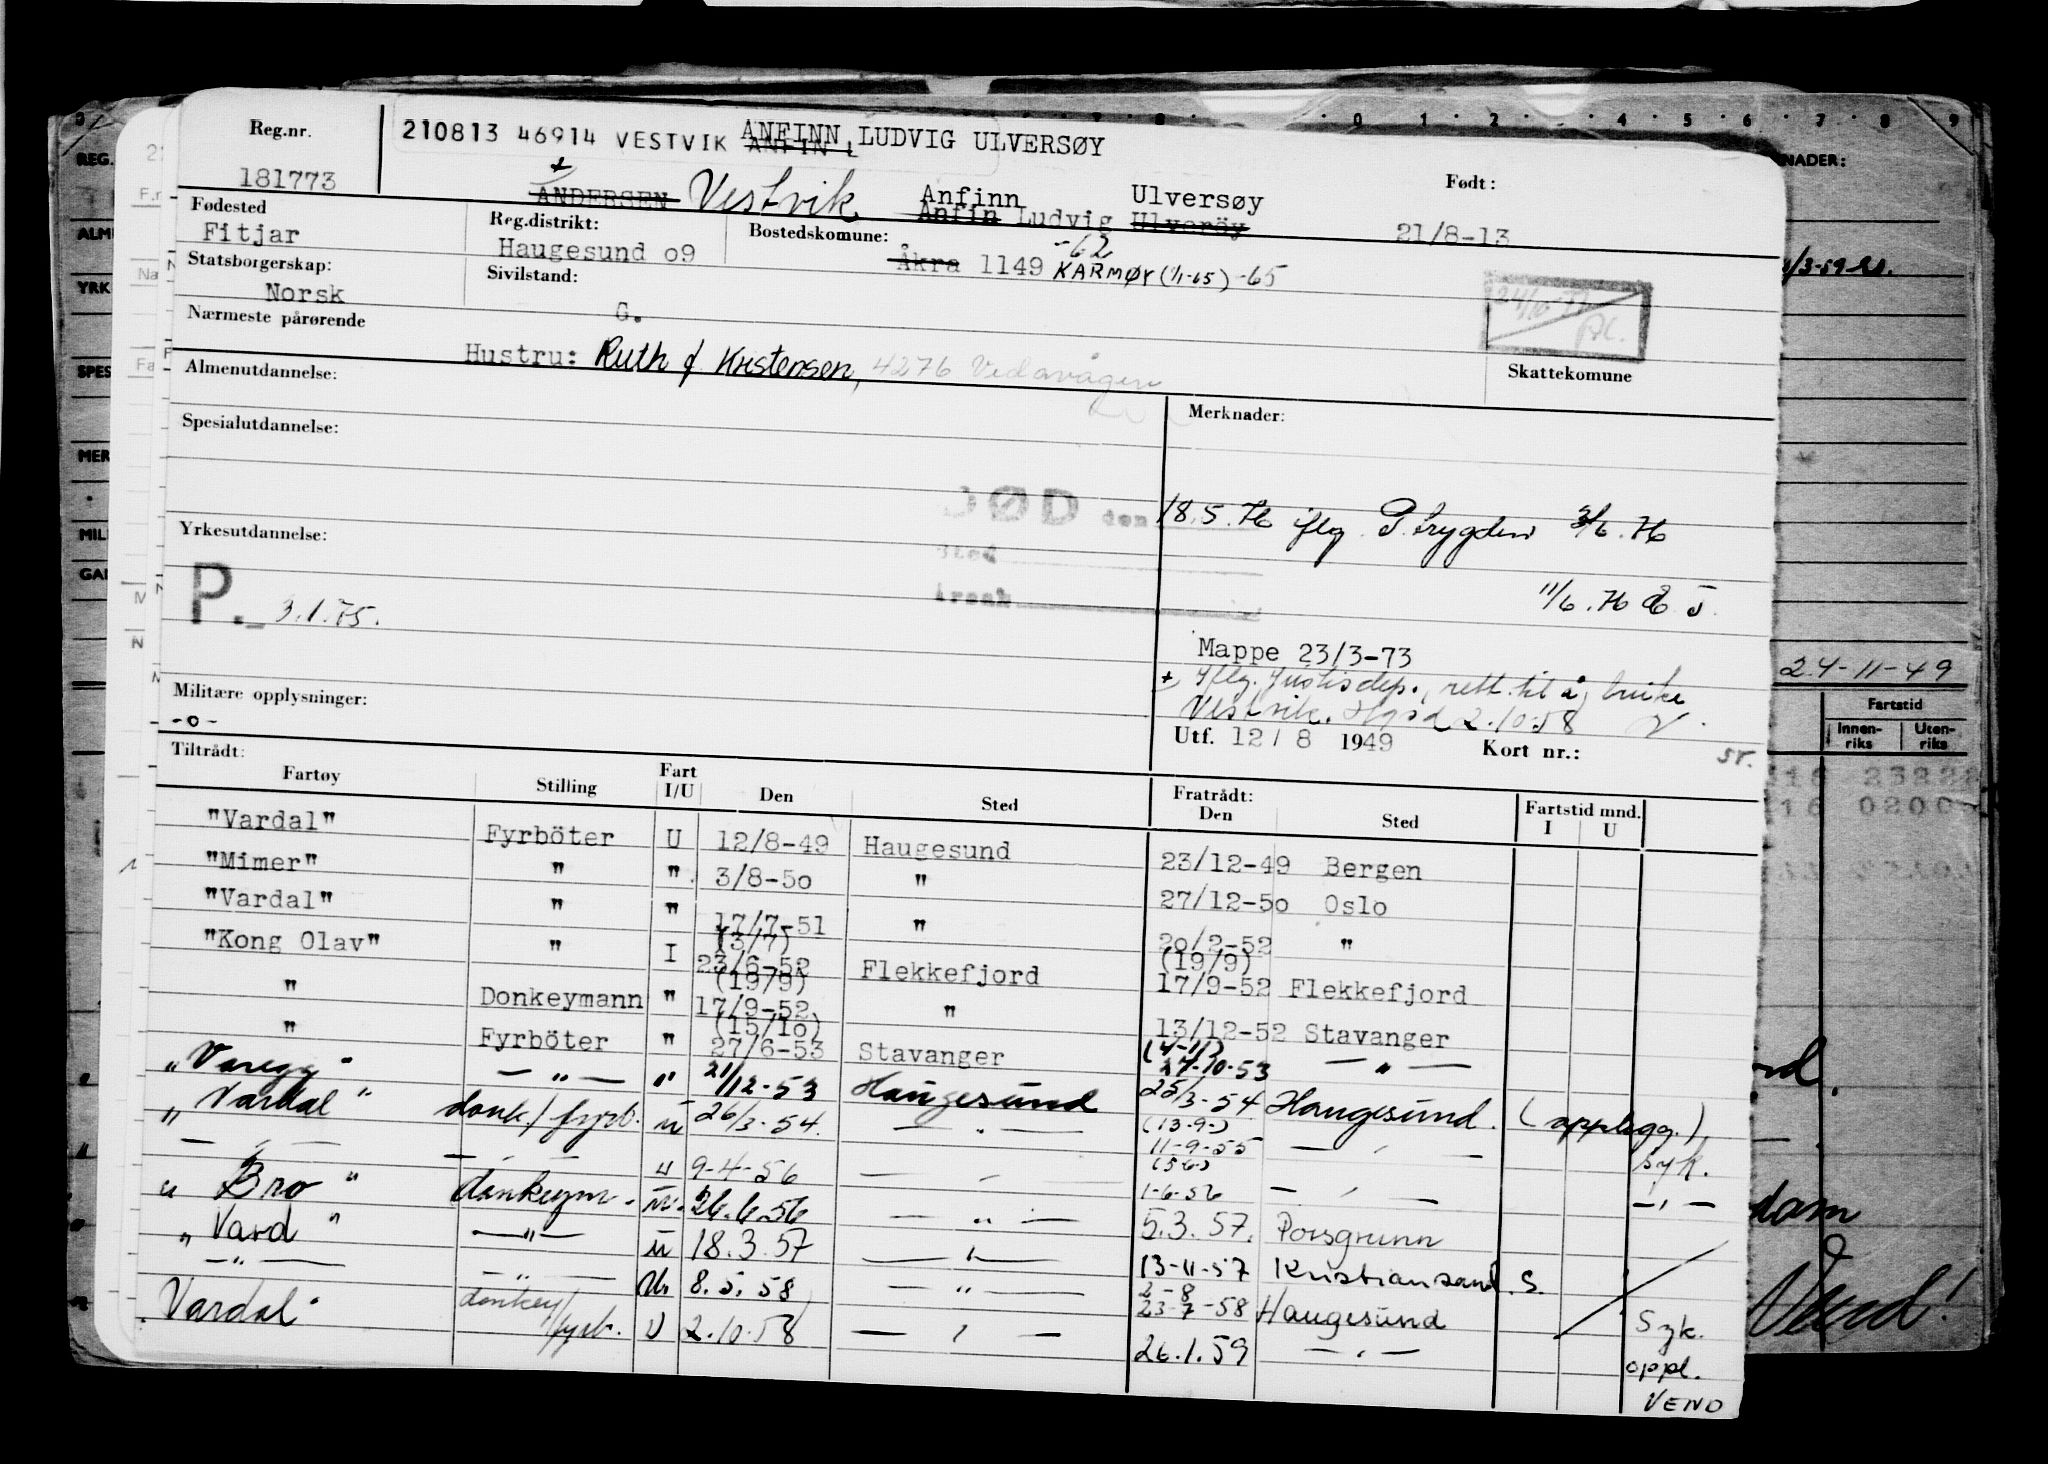 Reg.nr. 210813 46914 VESTVIK ANFINN LUDVIG ULVERSØY
ANFIN L
181773 + ANDERSEN Vestvik Anfinn Ulversøy Født:
Anfin Ludvig Ulveröy 21/8-13
Fødested Reg.distrikt: Bostedskomune:
Fitjar Haugesund o9 Åkra 1149 -62 KARMØY (1/1-65) -65
Statsborgerskap: Sivilstand:
Norsk G.
Nærmeste pårørende
Hustru: Ruth f. Kristensen, 4276 Vedavågen
Skattekomune
Almenutdannelse: Merknader:
Spesialutdannelse:
DØD den 18.5.76 iflg. P.trygden 3/6.76
Sted
Årsak
11/6.76
Yrkesutdannelse:
P. 3.1.75.
Mappe 23/3-73
+ Iflg. Justisdep. rett til å bruke
Vestvik. Hgsd 2.10.58
Militære opplysninger:
-o-
Utf. 12/8 1949 Kort nr.: sr.
Tiltrådt: Fratrådt:
Fartøy Stilling Fart I/U Den Sted Den Sted Fartstid mnd. I U
"Vardal" Fyrböter U 12/8-49 Haugesund 23/12-49 Bergen
"Mimer" " " 3/8-5o " 27/12-5o Oslo
"Vardal" " " 17/7-51 " 2o/2-52 "
"Kong Olav" " I (3/7) 23/6-52 Flekkefjord (19/9) 17/9-52 Flekkefjord
" Donkeymann " (19/9) 17/9-52 " 13/12-52 Stavanger
" Fyrböter " (15/1o) 27/6-53 Stavanger (4-11) 27-10-53 — " —
"Varegg" — " — " 21/12-53 Haugesund 25/3-54 Haugesund. (opplegg.)
"Vardal" donk./fyrb. u 26/3-54. — " — (13-9-) 11-9-55 — " — syk.
— " — — " — u 9-4-56 — " — (5-6-) 1-6-56 — " — — " —
" Bro " donkeym. u. 26.6.56 — " — 5.3.57. Porsgrunn
" Vard " — " — u 18.3.57 — " — 13-11-57 Kristiansand. S.
— " — — " — U. 8.5.58 — " — 2-8 23-7-58 Haugesund Syk.
Vardal" donkey/fyrb. U 2.10.58 — " — 26.1.59 — " — oppl.
VEND
24-11-49
Fartstid
Innen-riks Uten-riks
REG.
NADER:
ALM
YRK
SPES
MER
MIL
Vend!